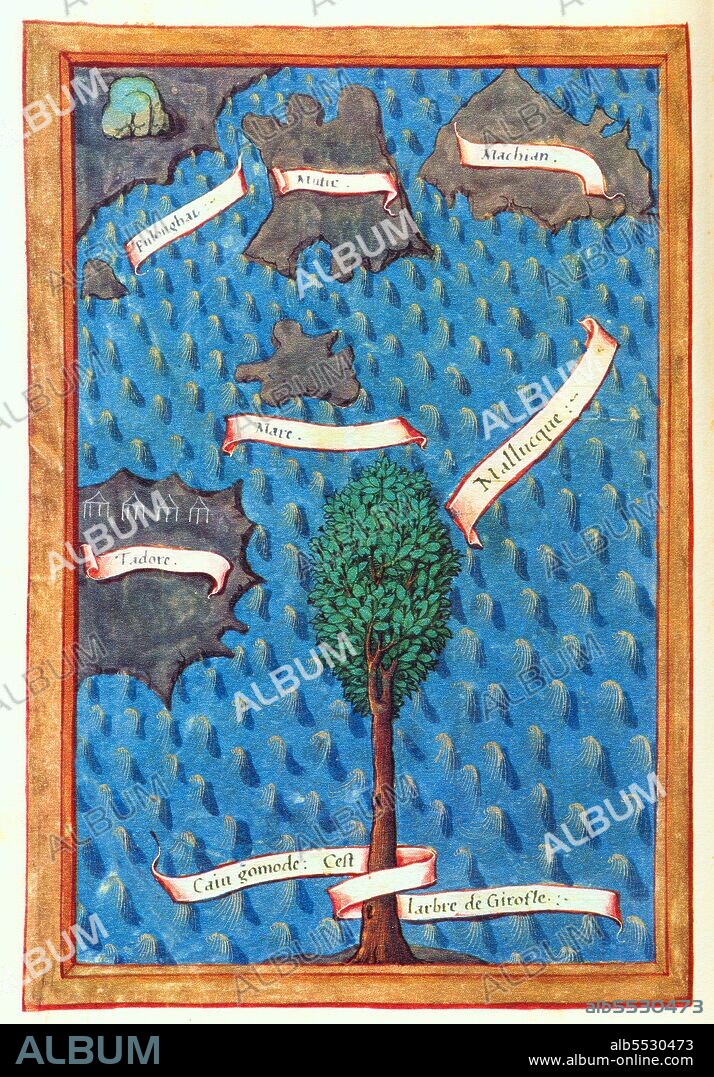 Pulonghat
Mutir.
Machian.
Mare.
Mallucque:~
Tadore.
Caiu gomode: Cest
larbre de Girofle:~
ALBUM
alb5530473
ALBUM
alb5530473
www.album-online.com